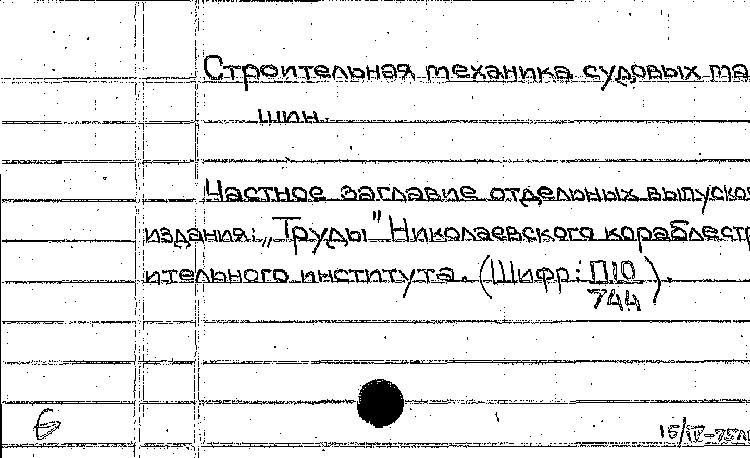 Строительная механика судовых ма
шин.
Частное заглавие отдельных выпусков
издания: „Труды" Николаевского кораблестр
ительного института. (Шифр: П10
744).
15/IV-75